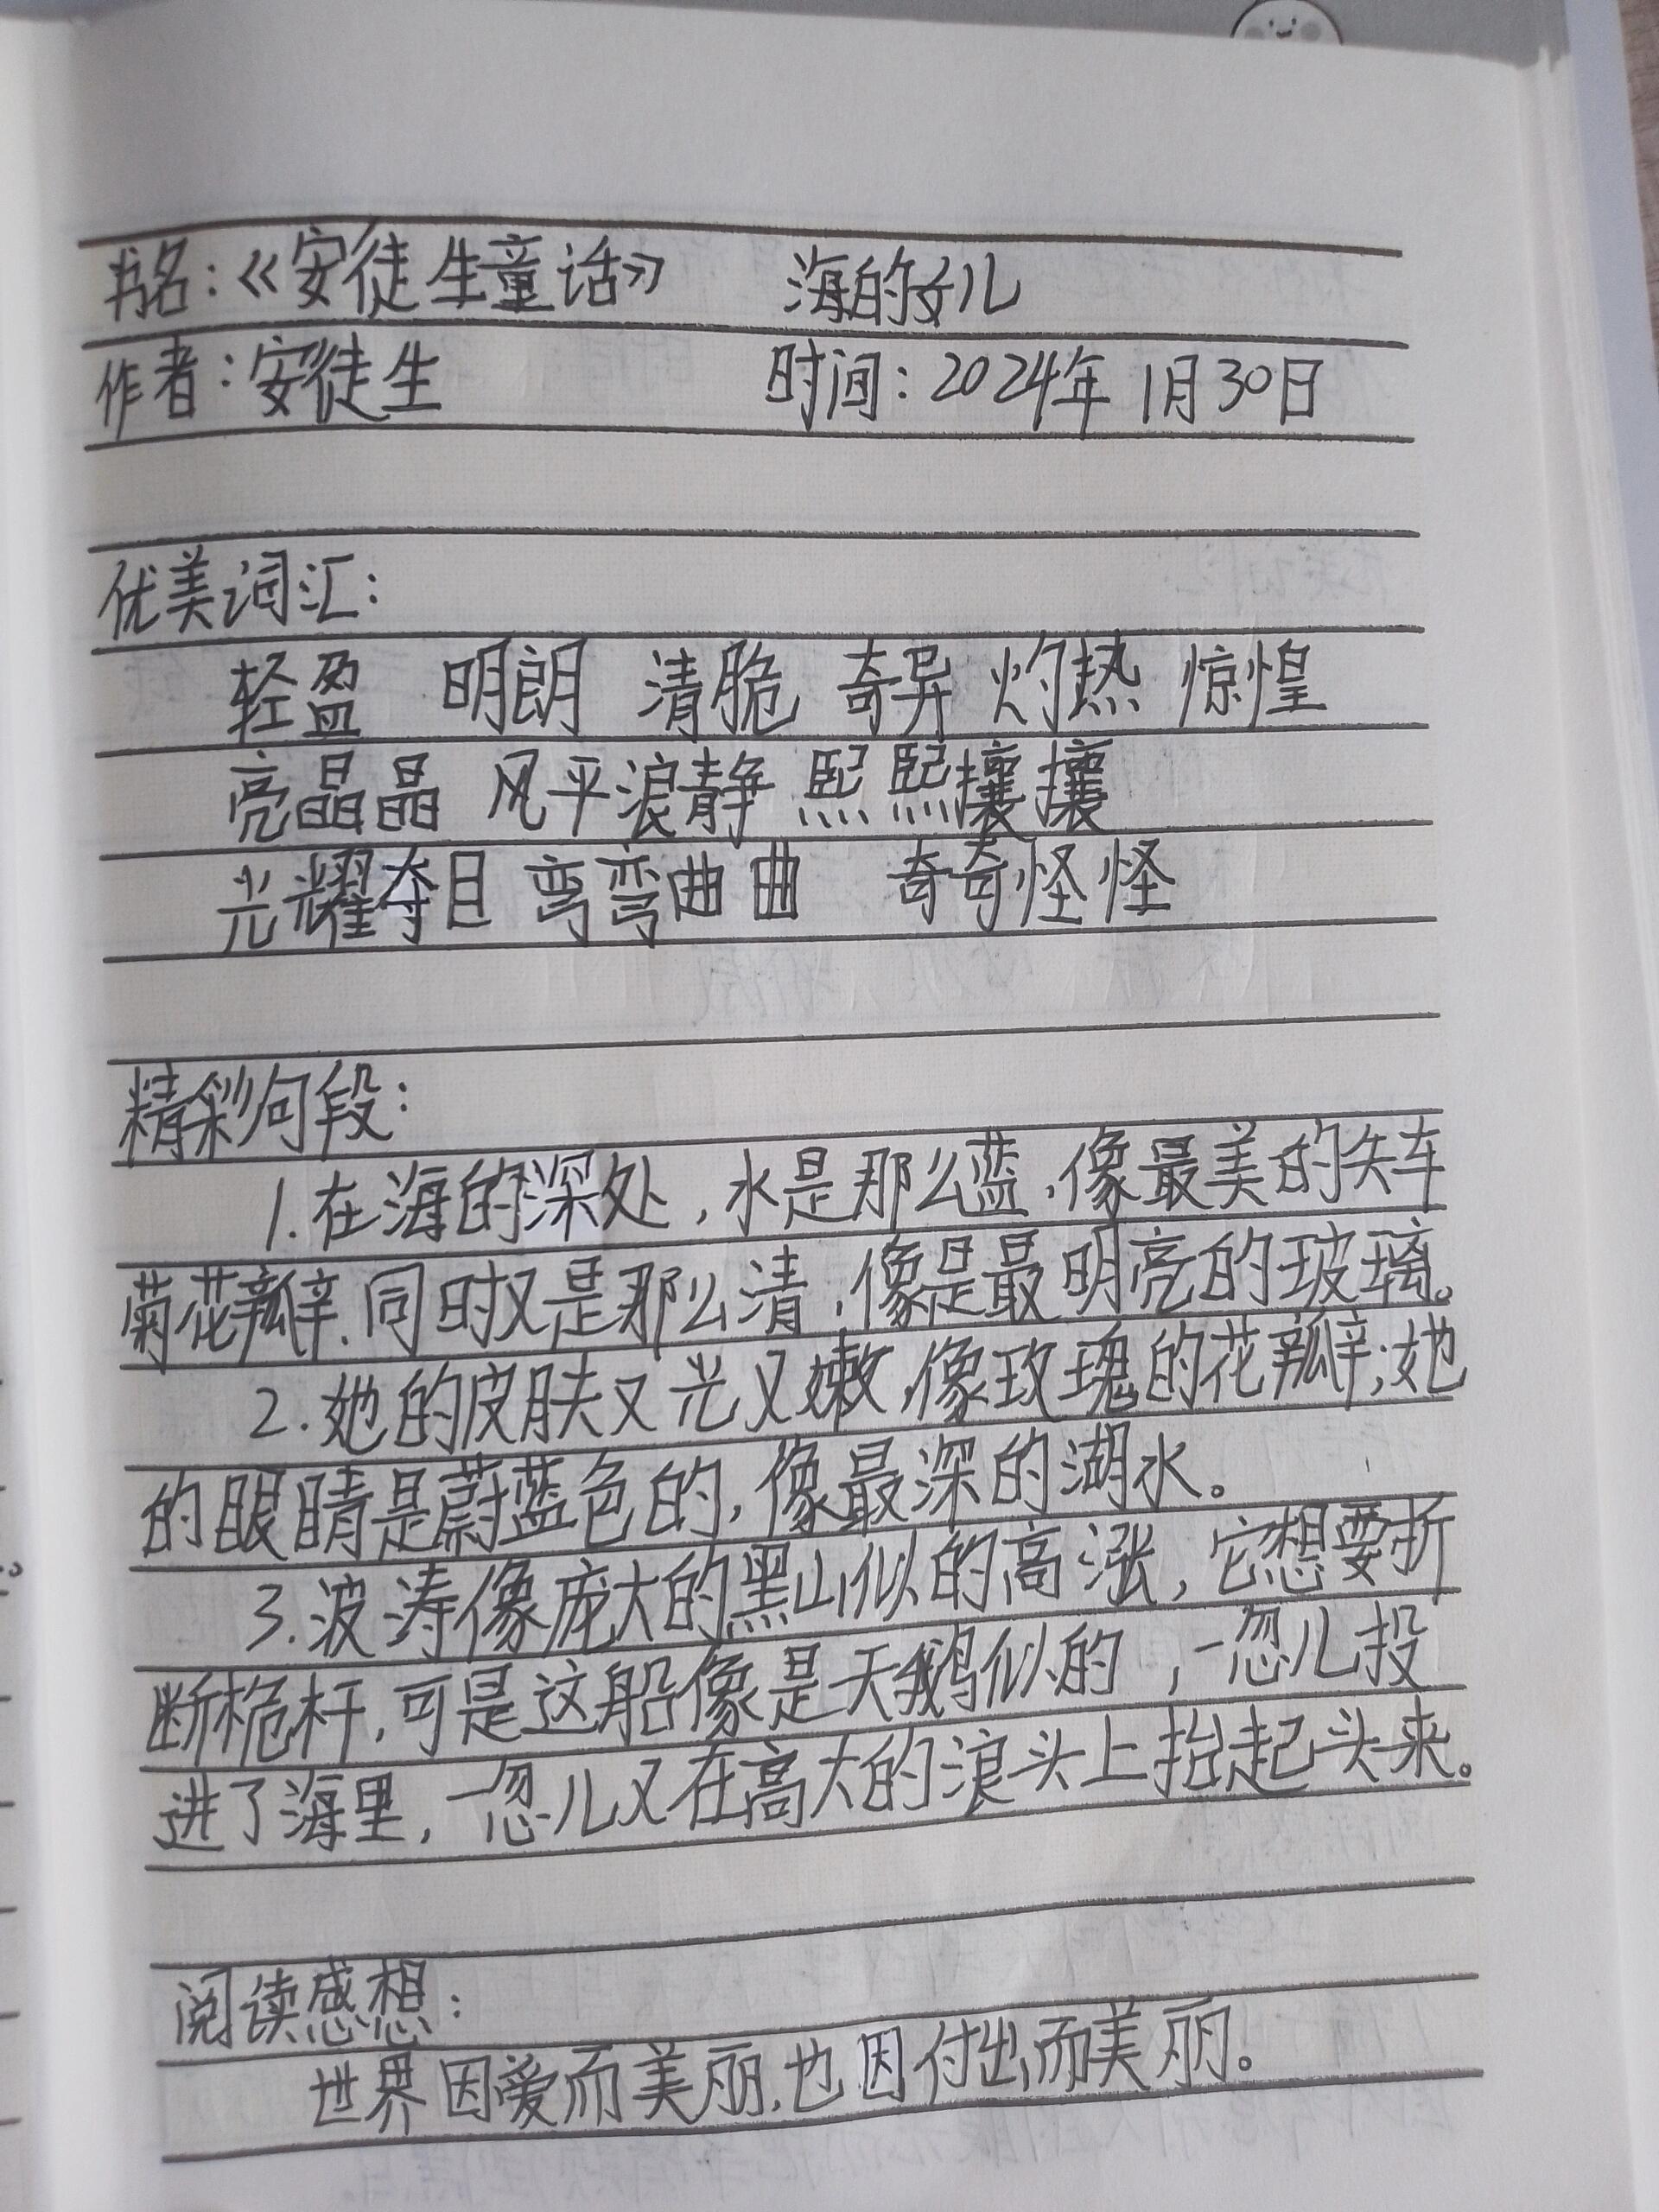 书名：《安徒生童话》 海的女儿
作者：安徒生 时间：2024年1月30日
优美词汇：
轻盈 明朗 清脆 奇异 灼热 惊惶
亮晶晶 风平浪静 熙熙攘攘
光耀夺目 弯弯曲曲 奇奇怪怪
精彩句段：
1.在海的深处，水是那么蓝，像最美的矢车
菊花瓣，同时又是那么清，像是最明亮的玻璃。
2.她的皮肤又光又嫩，像玫瑰的花瓣；她
的眼睛是蔚蓝色的，像最深的湖水。
3.波涛像庞大的黑山似的高涨，它想要折
断桅杆，可是这船像是天鹅似的，一忽儿投
进了海里，一忽儿又在高大的浪头上抬起头来。
阅读感想：
世界因爱而美丽，也因付出而美丽。